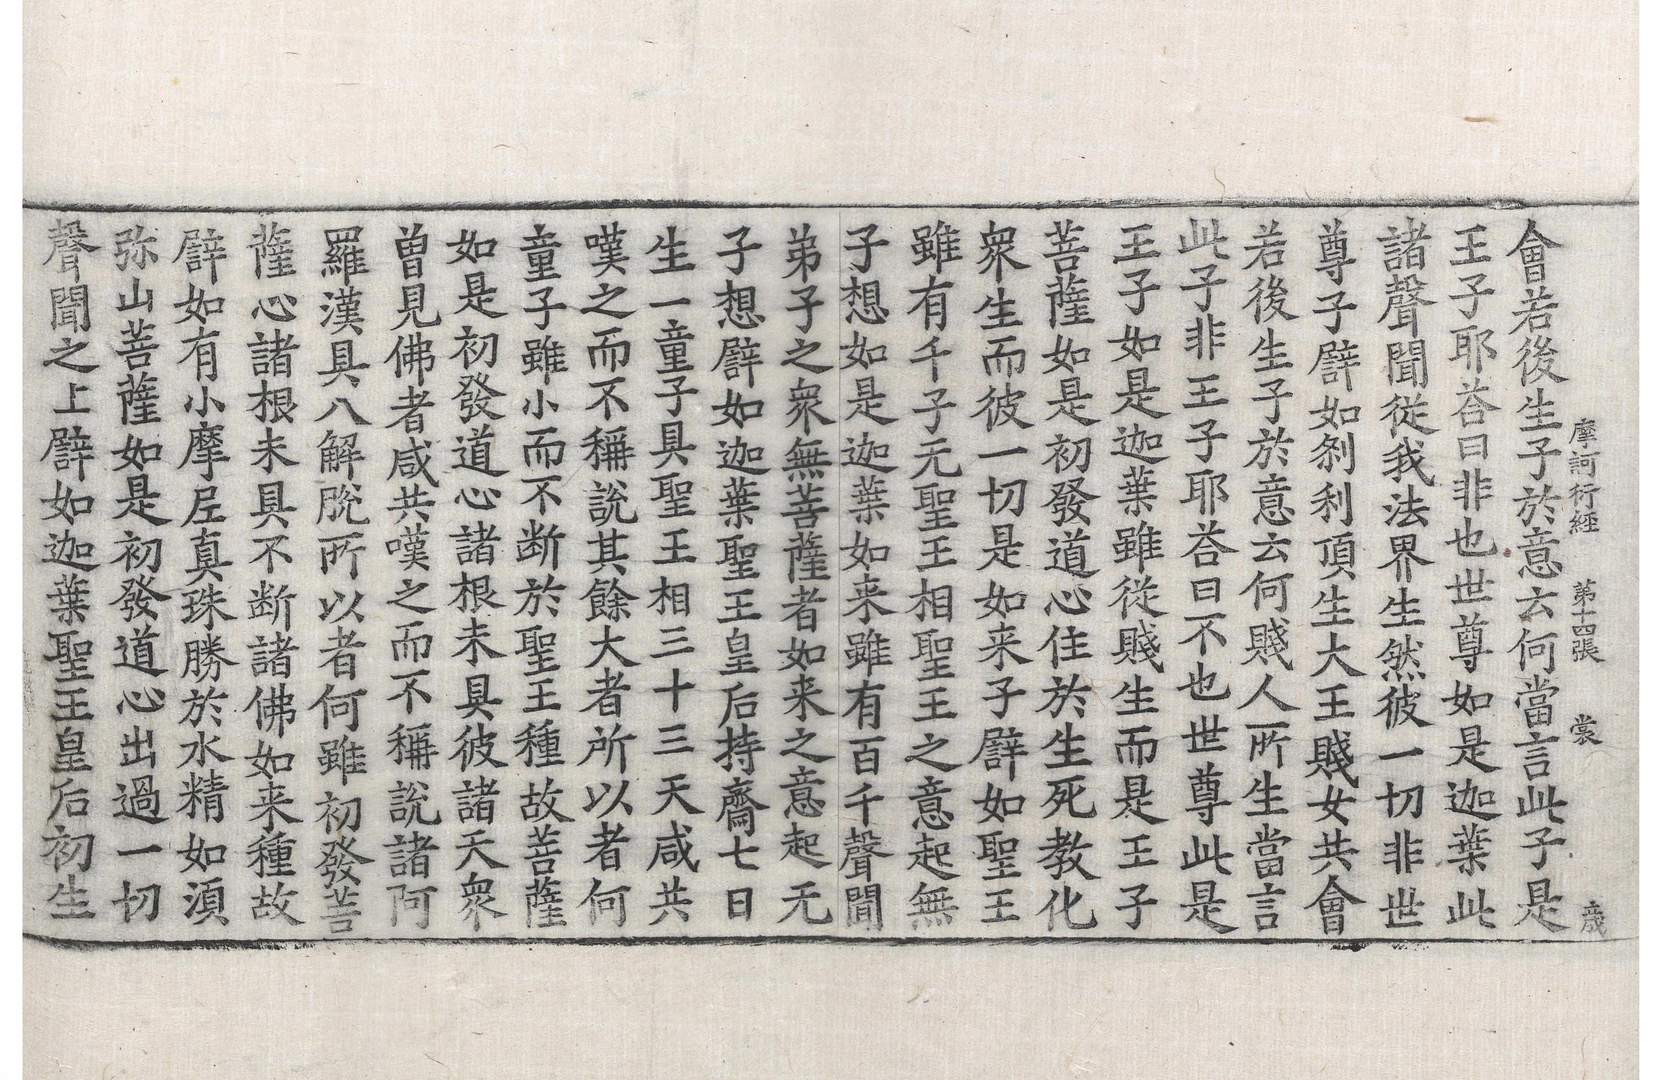 摩訶衍經 第十四張 裳 歲
會若後生子於意云何當言此子是
王子耶荅曰非也世尊如是迦葉此
諸聲聞從我法界生然彼一切非世
尊子譬如剎利頂生大王賤女共會
若後生子於意云何賤人所生當言
此子非王子耶荅曰不也世尊此是
王子如是迦葉雖從賤生而是王子
菩薩如是初發道心住於生死教化
衆生而彼一切是如来子譬如聖王
雖有千子无聖王相聖王之意起無
子想如是迦葉如来雖有百千聲聞
弟子之衆無菩薩者如来之意起无
子想譬如迦葉聖王皇后持齋七日
生一童子具聖王相三十三天咸共
嘆之而不稱說其餘大者所以者何
童子雖小而不断於聖王種故菩薩
如是初發道心諸根未具彼諸天衆
曽見佛者咸共嘆之而不稱說諸阿
羅漢具八解脫所以者何雖初發菩
薩心諸根未具不断諸佛如来種故
譬如有小摩尼真珠勝於水精如湏
弥山菩薩如是初發道心出過一切
聲聞之上譬如迦葉聖王皇后初生